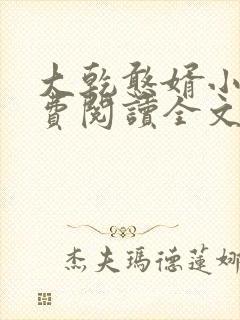 大乾憨婿小
費閱讀全文
杰夫瑪德蓮娜